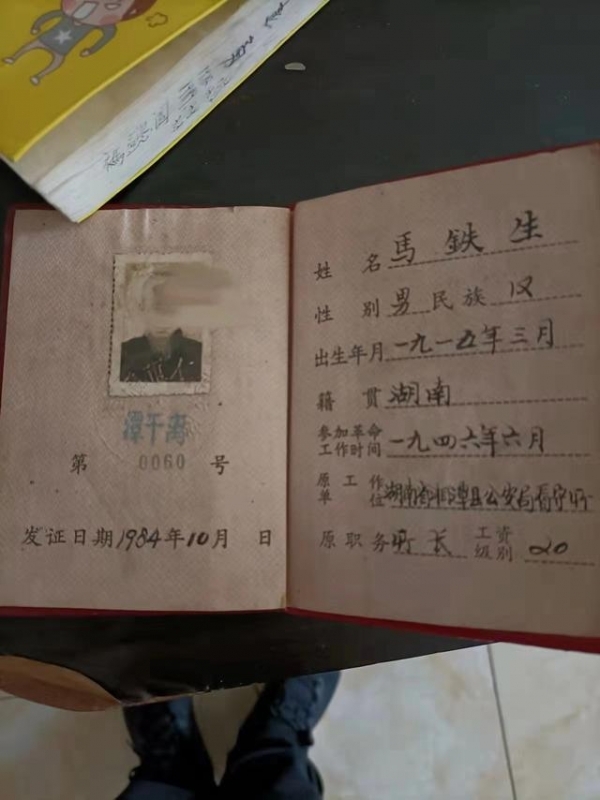 潭干离
第 0060 号
发证日期 1984年10月 日
姓名 馬鉄生
性别 男 民族 汉
出生年月 一九一五年三月
籍贯 湖南
参加革命
工作时间 一九四六年六月
原工作
单位 湖南省湘潭县公安局看守所
原职务 所长 工资
级别 20